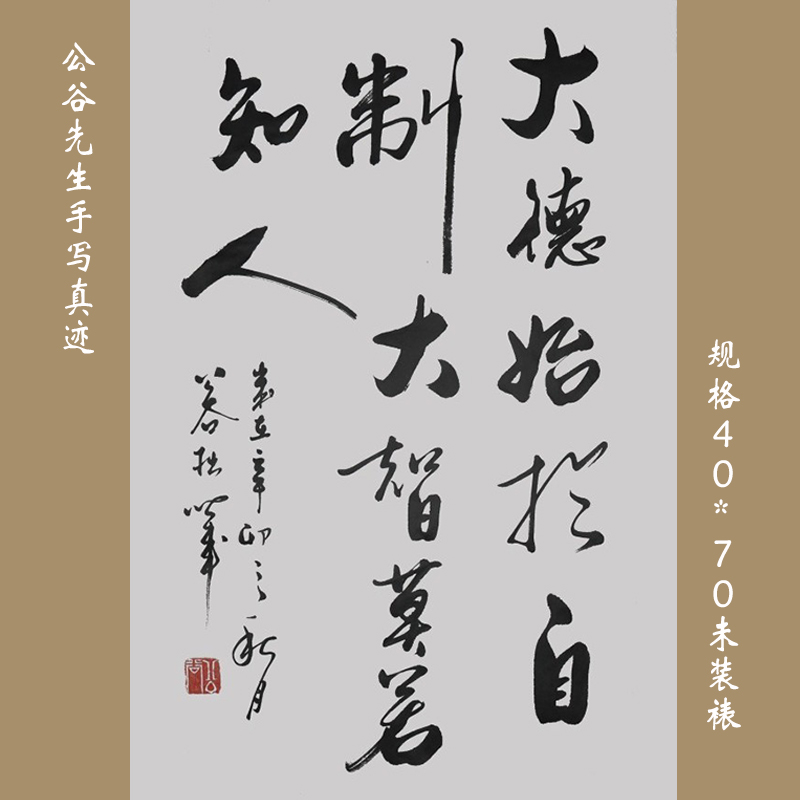 规格40*70未装裱
大德始於自
制大智莫若
知人
歲在辛卯之秋月
公谷拙筆
公谷
公谷先生手写真迹